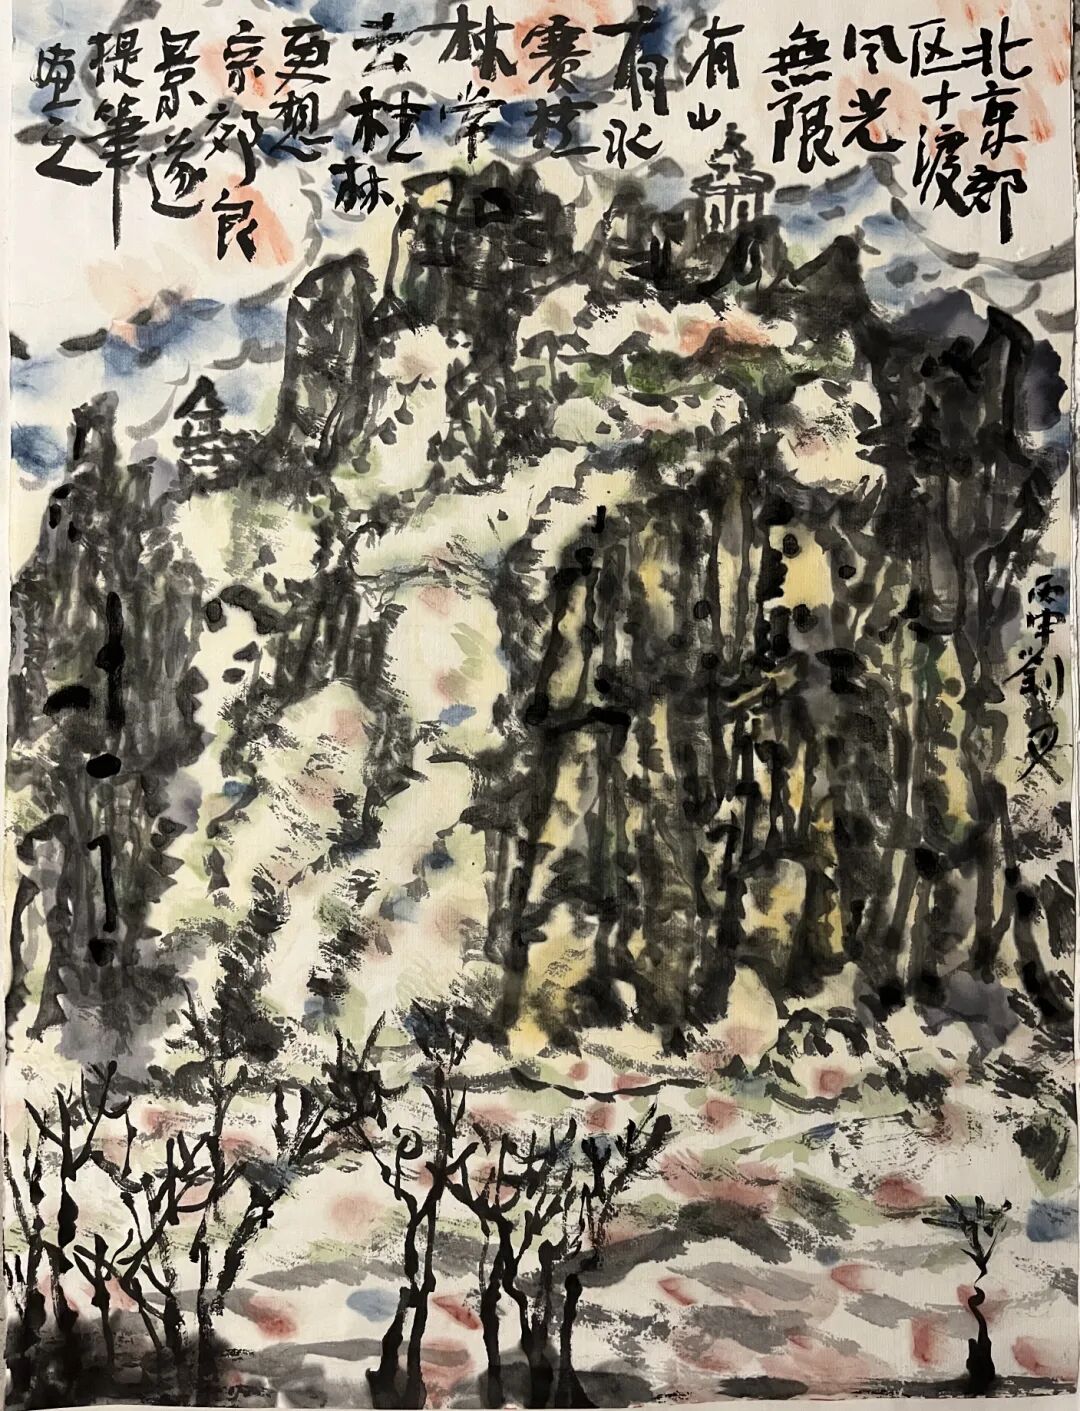 北京郊
区十渡
风光
無限
有山
有水
赛桂
林常
去桂林
更想
京郊良
景遂
提筆
画之
丙申劉